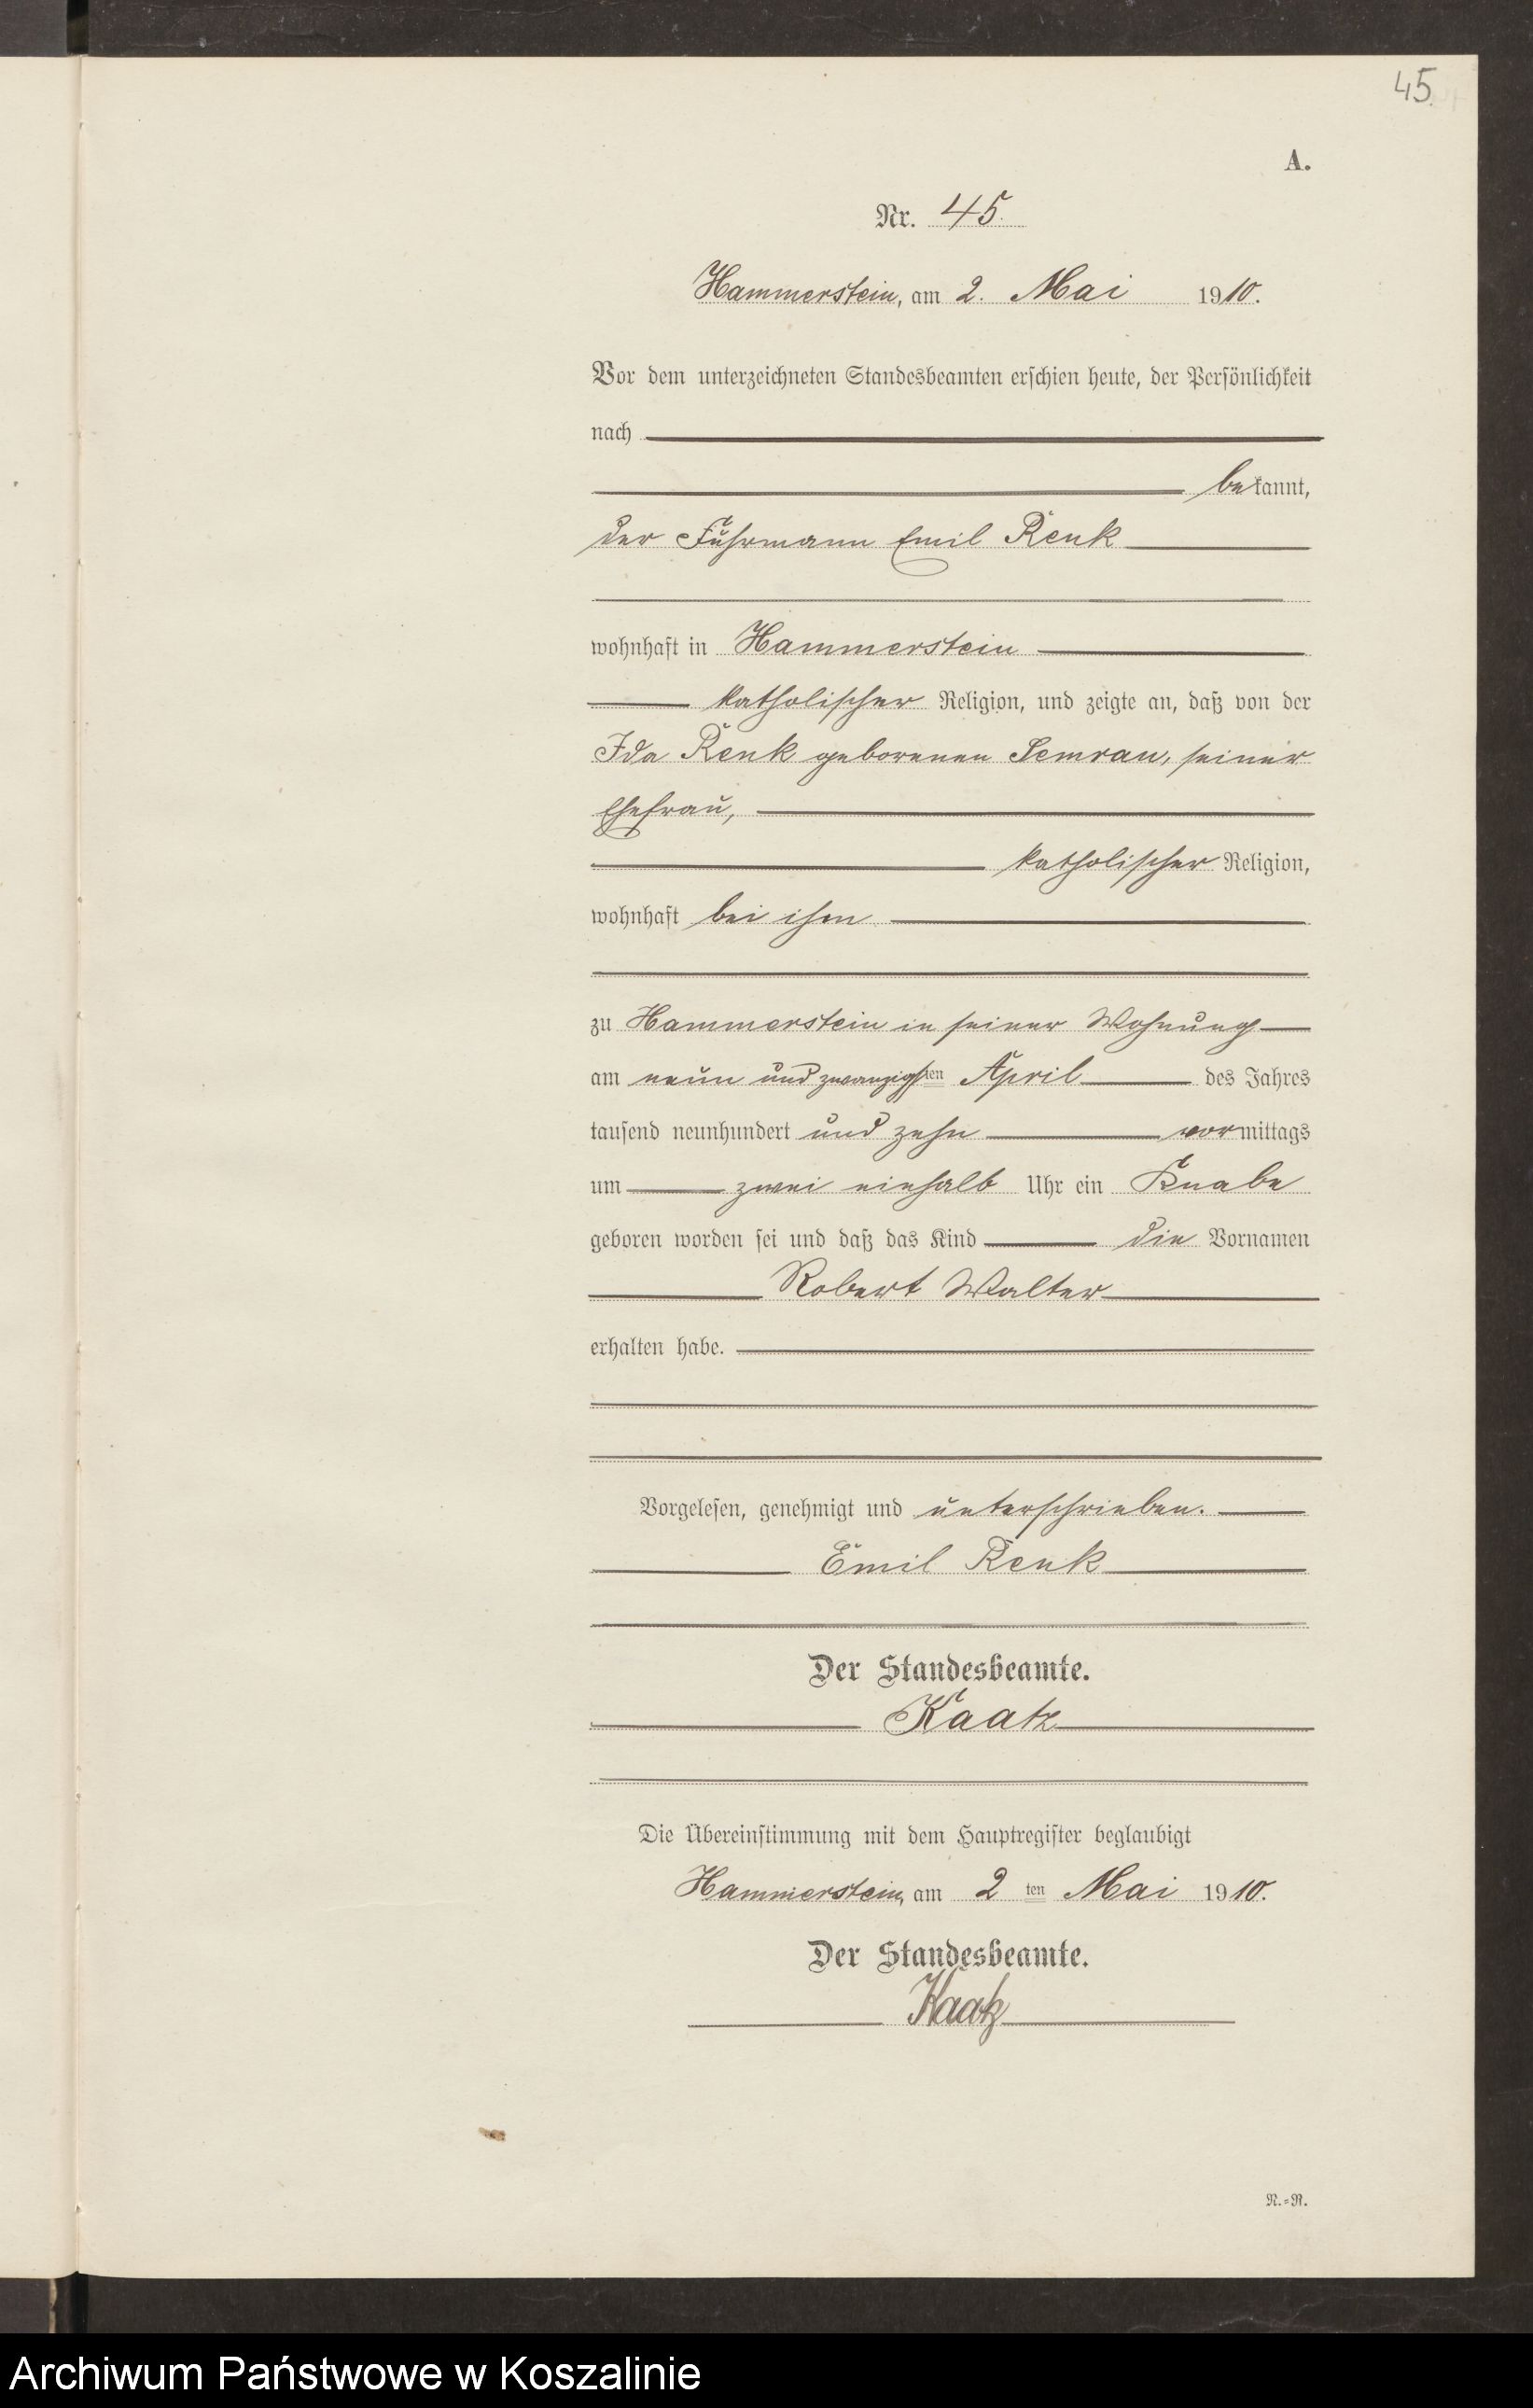 45.
A.
Nr. 45.
Hammerstein, am 2. Mai 1910.
Vor dem unterzeichneten Standesbeamten erschien heute, der Persönlichkeit
nach
bekannt,
der Fuhrmann Emil Renk
wohnhaft in Hammerstein
katholischer Religion, und zeigte an, daß von der
Ida Renk geborenen Semrau, seiner
Ehefrau,
katholischer Religion,
wohnhaft bei ihm
zu Hammerstein in seiner Wohnung
am neun und zwanzigsten April des Jahres
tausend neunhundert und zehn vormittags
um zwei einhalb Uhr ein Knabe
geboren worden sei und daß das Kind die Vornamen
Robert Walter
erhalten habe.
Vorgelesen, genehmigt und unterschrieben.
Emil Renk
Der Standesbeamte.
Kaatz
Die Übereinstimmung mit dem Hauptregister beglaubigt
Hammerstein, am 2 ten Mai 1910.
Der Standesbeamte.
Kaatz
N.=R.
Archiwum Państwowe w Koszalinie